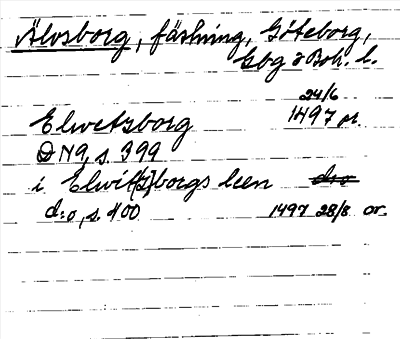 Älvsborg, fästning, Göteborg,
Gbg o Boh. l.
24/6
Elwetzborg 1497 or.
DN9, s. 399
i Elwi[tz]borgs leen d:o
d:o, s. 400 1497 28/8 or.